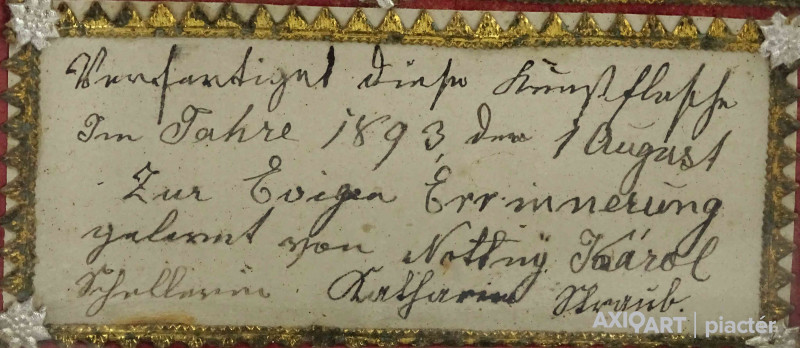 Verfertiget diese Kunstflasche
Im Jahre 1893 den 1 August
Zur Evigen Errinnerung
gelernt von Nottny Károl
Schellerin Katharin Straub.
AXIOART | piactér